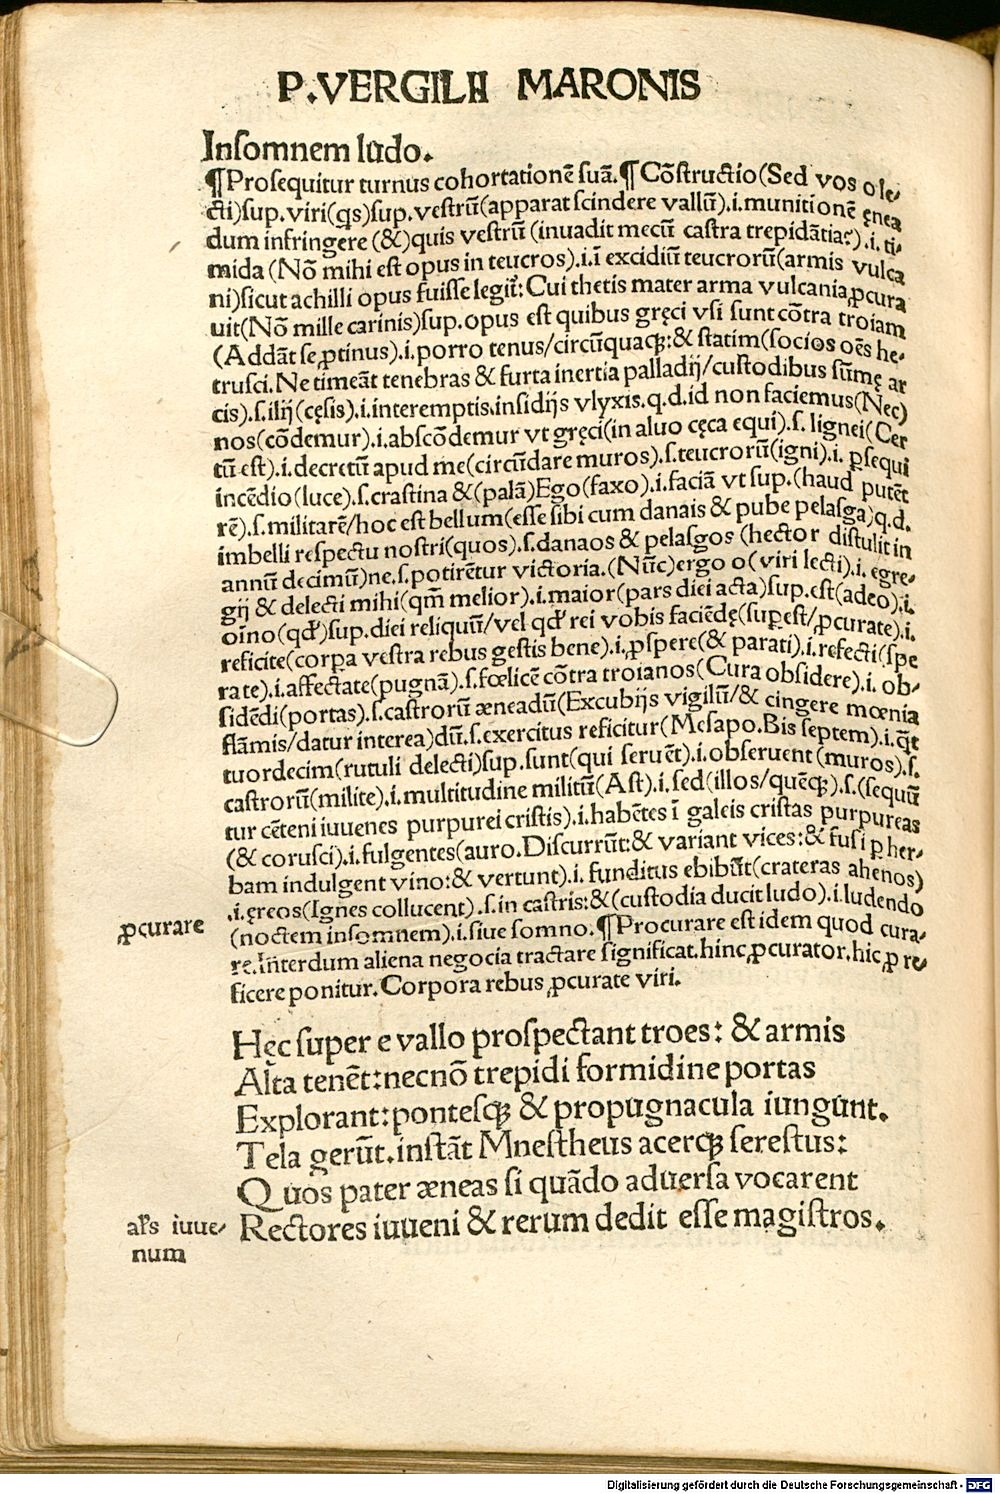 P.VERGILII MARONIS
Inſomnem ludo.
¶Proſequitur turnus cohortationē ſuā.¶Cōſtructio(Sed vos o le⸗
cti)ſup. viri(qs)ſup. veſtrū(apparat ſcindere vallū).i.munitionē ęnea
dum infringere (&)quis veſtrū (inuadit mecū caſtra trepidātia?).i. ti⸗
mida (Nō mihi eſt opus in teucros).i.ī excidiū teucrorū(armis vulca
ni)ſicut achilli opus fuiſſe legit᷑: Cui thetis mater arma vulcania ꝓcura
uit(Nō mille carinis)ſup.opus eſt quibus gręci vſi ſunt cōtra troiam
(Addāt ſe ꝓtinus).i.porro tenus/circūquaꝗ:& ſtatim(ſocios oēs he⸗
truſci. Ne timeāt tenebras & furta inertia palladij/cuſtodibus ſūmę ar
cis).ſ.ilij(cęſis).i.interemptis.inſidijs vlyxis.q.d.id non faciemus(Nec)
nos(cōdemur).i.abſcōdemur vt gręci(in aluo cęca equi).ſ. lignei(Cer
tū eſt).i.decretū apud me(circūdare muros).ſ.teucrorū(igni).i. ꝑſequi
incēdio(luce).ſ.craſtina &(palā)Ego(faxo).i.faciā vt ſup.(haud putēt
rē).ſ.militarē/hoc eſt bellum(eſſe ſibi cum danais & pube pelaſga)q.d.
imbelli reſpectu noſtri(quos).ſ.danaos & pelaſgos (hector diſtulit in
annū decimū)ne.ſ.potirētur victoria.(Nūc)ergo o(viri lecti).i. egre⸗
gij & delecti mihi(qm̄ melior).i.maior(pars diei acta)ſup.eſt(adeo).i.
oīno(qd')ſup.diei reliquū/vel qd' rei vobis faciēdę(ſuꝑeſt/ꝓcurate).i.
reficite(corꝑa veſtra rebus geſtis bene).i.ꝓſpere(& parati).i.refecti(ſpe
rate).i.affectate(pugnā).ſ.fœlicē cōtra troianos(Cura obſidere).i. ob⸗
ſidēdi(portas).ſ.caſtrorū æneadū(Excubijs vigilū/& cingere mœnia
flāmis/datur interea)dū.ſ.exercitus reficitur(Meſapo.Bis ſeptem).i.q̄t
tuordecim(rutuli delecti)ſup.ſunt(qui ſeruēt).i.obſeruent(muros).ſ.
caſtrorū(milite).i.multitudine militū(Aſt).i.ſed(illos/quēꝗ).ſ.(ſequū
tur cēteni iuuenes purpurei criſtis).i.habētes ī galeis criſtas purpureas
(& coruſci).i.fulgentes(auro.Diſcurrūt:& variant vices:& fuſi ꝑ her⸗
bam indulgent vino:& vertunt).i. funditus ebibūt(crateras ahenos)
.i.ęreos(Ignes collucent).ſ.in caſtris:&(cuſtodia ducit ludo).i.ludendo
(noctem inſomnem).i.ſiue ſomno.¶Procurare eſt idem quod cura⸗
re.Interdum aliena negocia tractare ſignificat.hinc ꝓcurator.hic ꝓ re⸗
ficere ponitur.Corpora rebus ꝓcurate viri.
ꝓcurare
Hęc ſuper e vallo proſpectant troes: & armis
Alta tenēt:necnō trepidi formidine portas
Explorant:ponteſꝗ & propugnacula iungunt.
Tela gerūt.inſtāt Mneſtheus acerꝗ ſereſtus:
Quos pater æneas ſi quādo aduerſa vocarent
Rectores iuueni & rerum dedit eſſe magiſtros.
al's iuue⸗
num
Digitalisierung gefördert durch die Deutsche Forschungsgemeinschaft - DFG